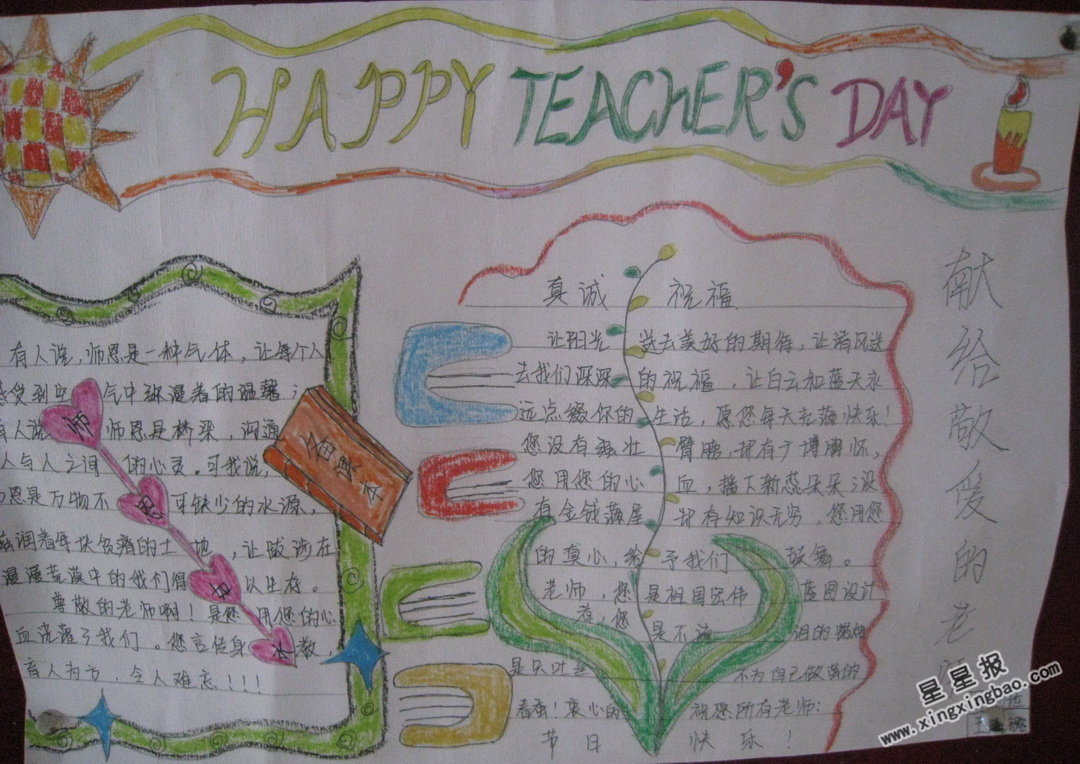 HAPPY TEACHER'S DAY
有人说,师恩是一种气体,让每个人
感受到空气中弥漫着的温馨;
有人说师恩是桥梁,沟通
人与人之间的心灵。可我说,
恩是万物不可缺少的水源,
滋润着每块贫瘠的土地,让跋涉在
漫漫荒漠中的我们得以生存。
尊敬的老师啊!是您用您的心
血浇灌了我们。您言传身教,
育人有方,令人难忘!!!
师
恩
水
备课本
真诚祝福
让阳光送去美好的期待,让清风送
去我们深深的祝福,让白云和蓝天永
远点缀你的生活,愿您每天充满快乐!
您没有强壮臂膀,却有宽博胸怀,
您用您的心血,播下新蕊朵朵;没
有金钱满屋却有知识无穷,您用您
的真心,给予我们鼓舞。
老师,您是祖国宏伟蓝图设计
者,您是不
是只吐丝不为自己做茧的
春蚕!衷心的祝愿所有老师:
节日快乐!
献给敬爱的老
星星报
www.xingxingbao.com